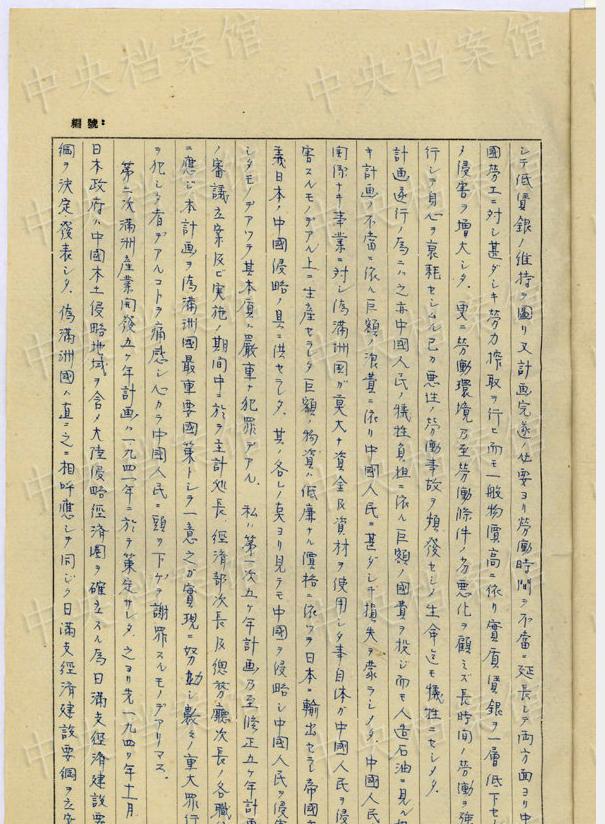 編號：
シテ低賃銀ノ維持ヲ圖リ又計画完遂ノ必要ヨリ労働時間ヲ不當ニ延長シテ両方面ヨリ中
國労工ニ対シ甚ダシキ労力搾取ヲ行ヒ而モ一般物價高ニ依リ實質賃銀ヲ一層低下セシ
侵害ヲ増大シタ。更ニ労働環境乃至労働條件ノ劣悪化ヲ顧ミズ長時間ノ労働ヲ強
行シテ身心ヲ衰耗セシムル已カ悪性ノ労働事故ヲ頻發セシメ生命迄モ犠牲ニセシメタ。
計画遂行ノ為ニハ之亦中國人民ノ犠牲負担ニ依ル巨額ノ國費ヲ投ジ而モ人造石油ニ見ル
キ計画ノ不當ニ依ル巨額ノ浪費ニ依リ中國人民ニ甚ダシキ損失ヲ蒙ラシメタ。中國人民
関係ナキ事業ニ対シ偽満洲國ガ莫大ナ資金及資材ヲ使用シタ事自体ガ中國人民ヲ侵
害スルモノデアル上ニ生産セラレタ巨額ノ物資ハ低廉ナル價格ニ依ツテ日本ニ輸出セラレ帝國主
義日本ノ中國侵略ノ具ニ供セラレタ。其ノ各レノ点ヨリ見テモ中國ヲ侵略シ中國人民ヲ侵害
シタモノデアツテ其本質ハ嚴重ナ犯罪デアル。私ハ第一次五ケ年計画乃至修正五ケ年計画
ノ審議立案及ビ実施ノ期間中ニ於テ主計処長、經濟部次長及總務廳次長ノ各職
ニ應ジ本計画ヲ偽満洲國最重要國策トシテ一意之ガ實現ニ努力シ數々ノ重大罪行
ヲ犯シタ者デアルコトヲ痛感シ心カラ中國人民ニ頭ヲ下ゲテ謝罪スルモノデアリマス。
第二次満洲産業開發五ケ年計画ハ一九四一年ニ於テ策定サレタ。之ヨリ先一九四〇年十一月
日本政府ハ中國本土侵略地域ヲ含ム大陸侵略經濟圏ヲ確立スル為日満支經濟建設要
綱ヲ決定發表シタ。偽満洲國ハ直ニ之ニ相呼應シテ同ジク日満支經済建設要綱ヲ立案
中央档案馆